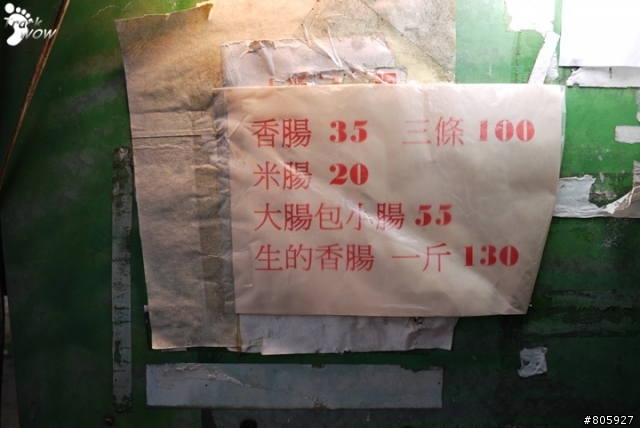 Track
WOW
香腸 35 三條 100
米腸 20
大腸包小腸 55
生的香腸 一斤 130
#805927